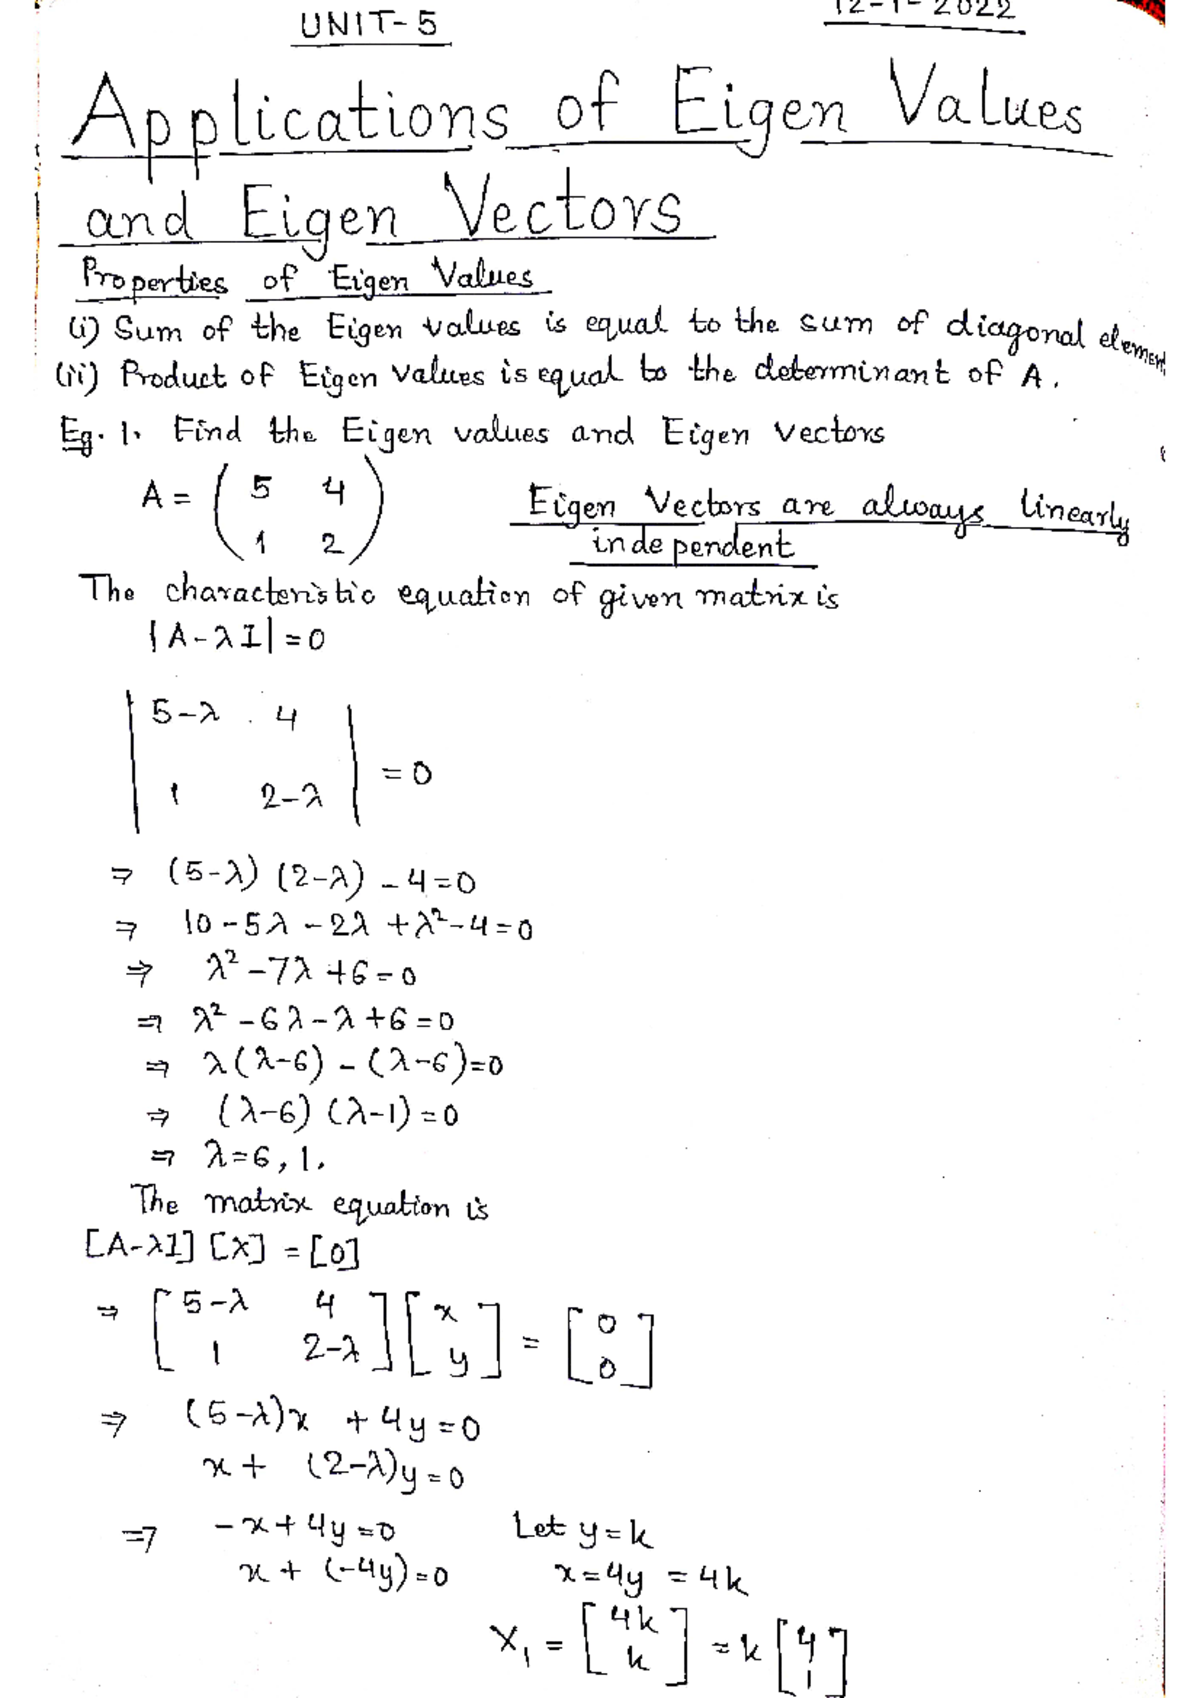 UNIT-5
12-1-2022
Applications of Eigen Values
and Eigen Vectors
Properties of Eigen Values
(i) Sum of the Eigen values is equal to the sum of diagonal element
(ii) Product of Eigen values is equal to the determinant of A.
Eg. 1. Find the Eigen values and Eigen vectors
A = ( 5 4
1 2 )
Eigen Vectors are always linearly
independent
The characteristic equation of given matrix is
|A-λI|=0
| 5-λ 4 |
= 0
| 1 2-λ |
⇒ (5-λ) (2-λ) - 4=0
⇒ 10-5λ-2λ+λ²-4=0
⇒ λ²-7λ+6=0
⇒ λ²-6λ-λ+6=0
⇒ λ(λ-6) - (λ-6)=0
⇒ (λ-6) (λ-1)=0
⇒ λ=6, 1.
The matrix equation is
[A-λI] [X] = [0]
⇒ [ 5-λ 4 ] [ x ] = [ 0 ]
[ 1 2-λ ] [ y ] [ 0 ]
⇒ (5-λ)x + 4y=0
x + (2-λ)y=0
⇒ -x+4y=0 Let y=k
x + (-4y)=0 x=4y = 4k
X₁ = [ 4k ] = k [ 4 ]
[ k ] [ 1 ]